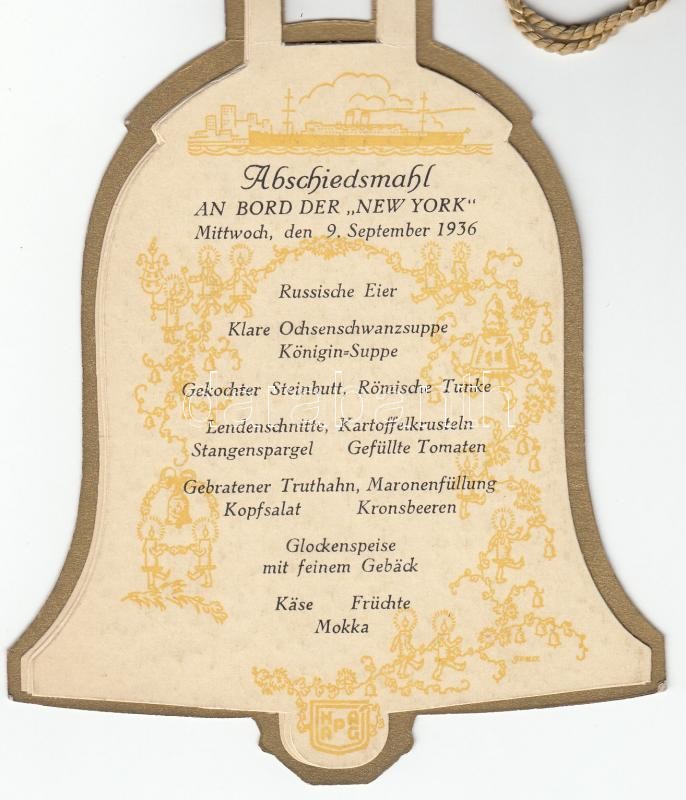 Abschiedsmahl
AN BORD DER „NEW YORK"
Mittwoch, den 9. September 1936
Russische Eier
Klare Ochsenschwanzsuppe
Königin=Suppe
Gekochter Steinbutt, Römische Tunke
darabanth
Lendenschnitte, Kartoffelkrusteln
Stangenspargel Gefüllte Tomaten
Gebratener Truthahn, Maronenfüllung
Kopfsalat Kronsbeeren
Glockenspeise
mit feinem Gebäck
Käse Früchte
Mokka
HAPAG